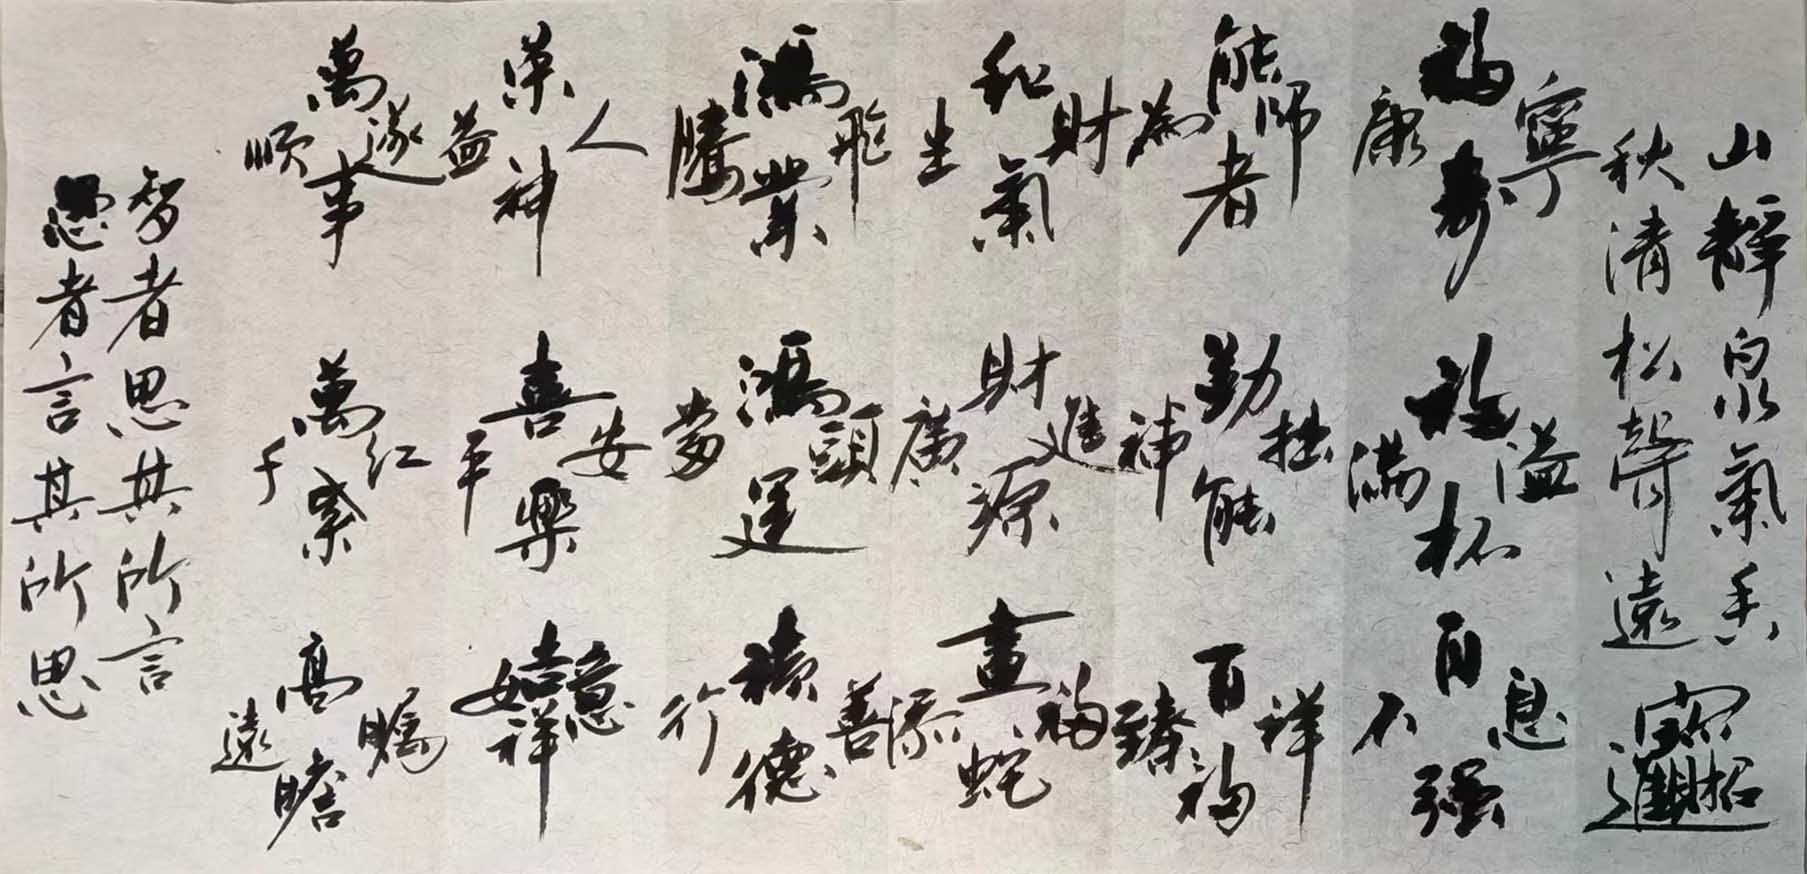 山靜泉氣香
秋清松聲遠
招財進寶
福壽康寧
福杯滿溢
自强不息
能者為師
勤能補拙
百福臻祥
和氣生財
財源廣進
畫蛇添福
鴻業騰飛
鴻運當頭
積德行善
榮神益人
喜樂平安
吉祥如意
萬事順遂
萬紫千紅
高瞻遠矚
智者思其所言
愚者言其所思